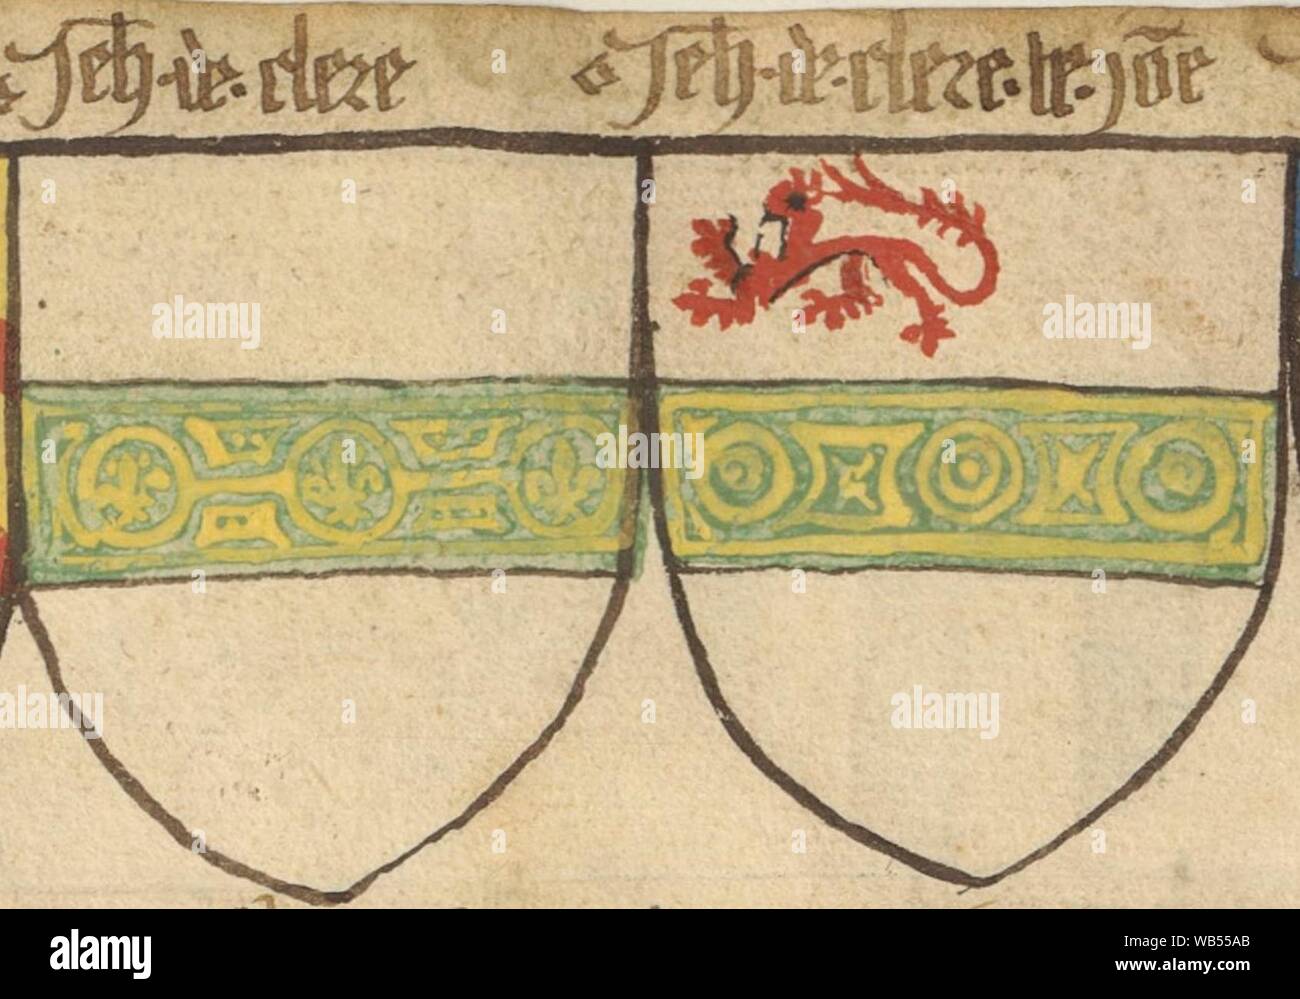 Jeh · de · clere
Jeh · de · clere · le · jōe
alamy
alamy
alamy
alamy
alamy
alamy
Image ID: WB55AB
www.alamy.com